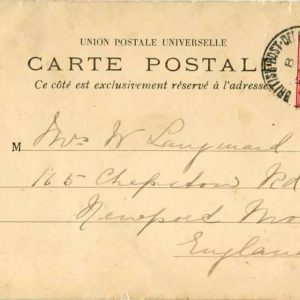 UNION POSTALE UNIVERSELLE
CARTE POSTAL
Ce côté est exclusivement réservé à l'adresse
BRITISH·POST·OF
M Mrs W Langmaid
165 Chepstow Rd
Newport Mo
England